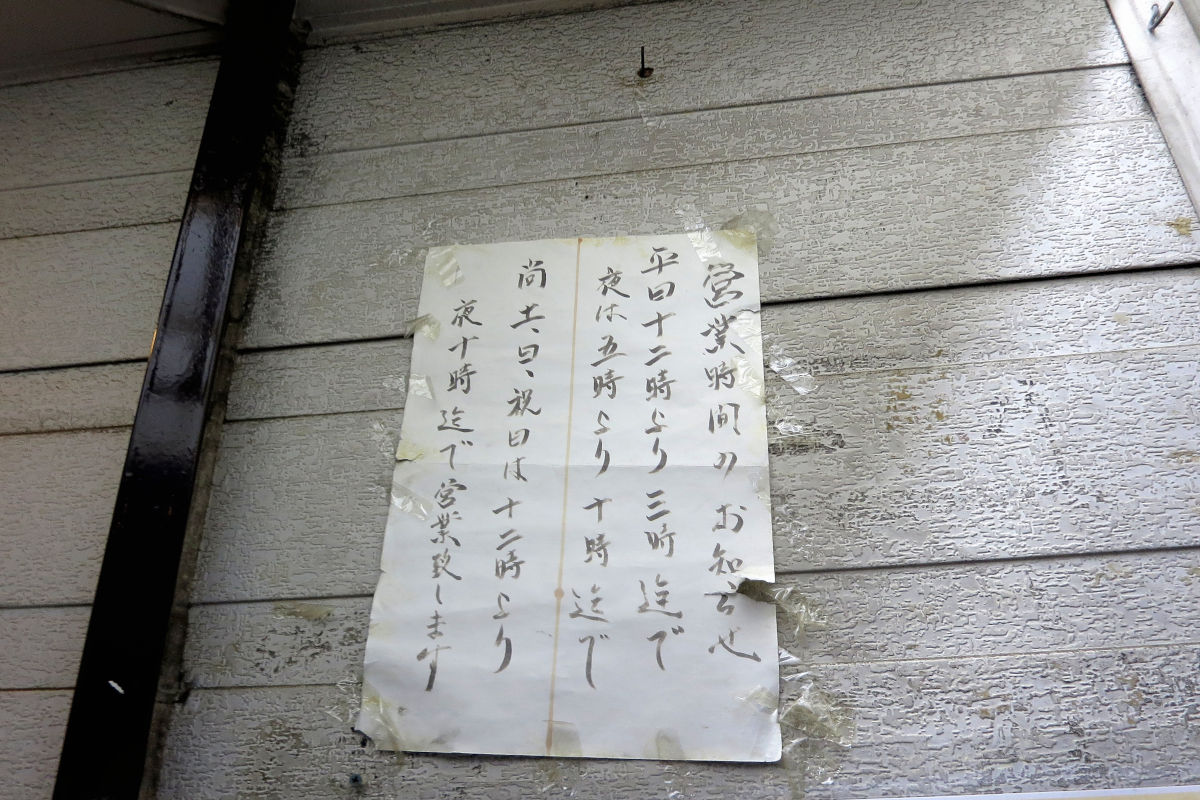 営業時間のお知らせ
平日十二時より三時迄で
夜は五時より十時迄で
尚土、日、祝日は十二時より
夜十時迄で営業致します